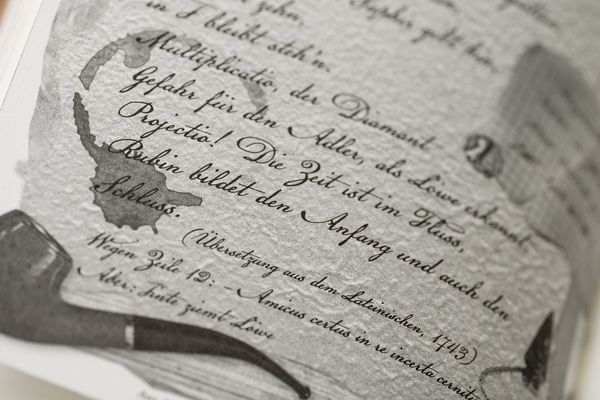 Saphir geht hin,
in F bleibt steh'n.
Multiplicatio, der Diamant
Gefahr für den Adler, als Löwe erkannt.
Projectio! Die Zeit ist im Fluss,
Rubin bildet den Anfang und auch den
Schluss.
(Übersetzung aus dem Lateinischen, 1743)
Wegen Zeile 12: - Amicus certus in re incerta cernitur
Ader: Tinte ziemt Löwe